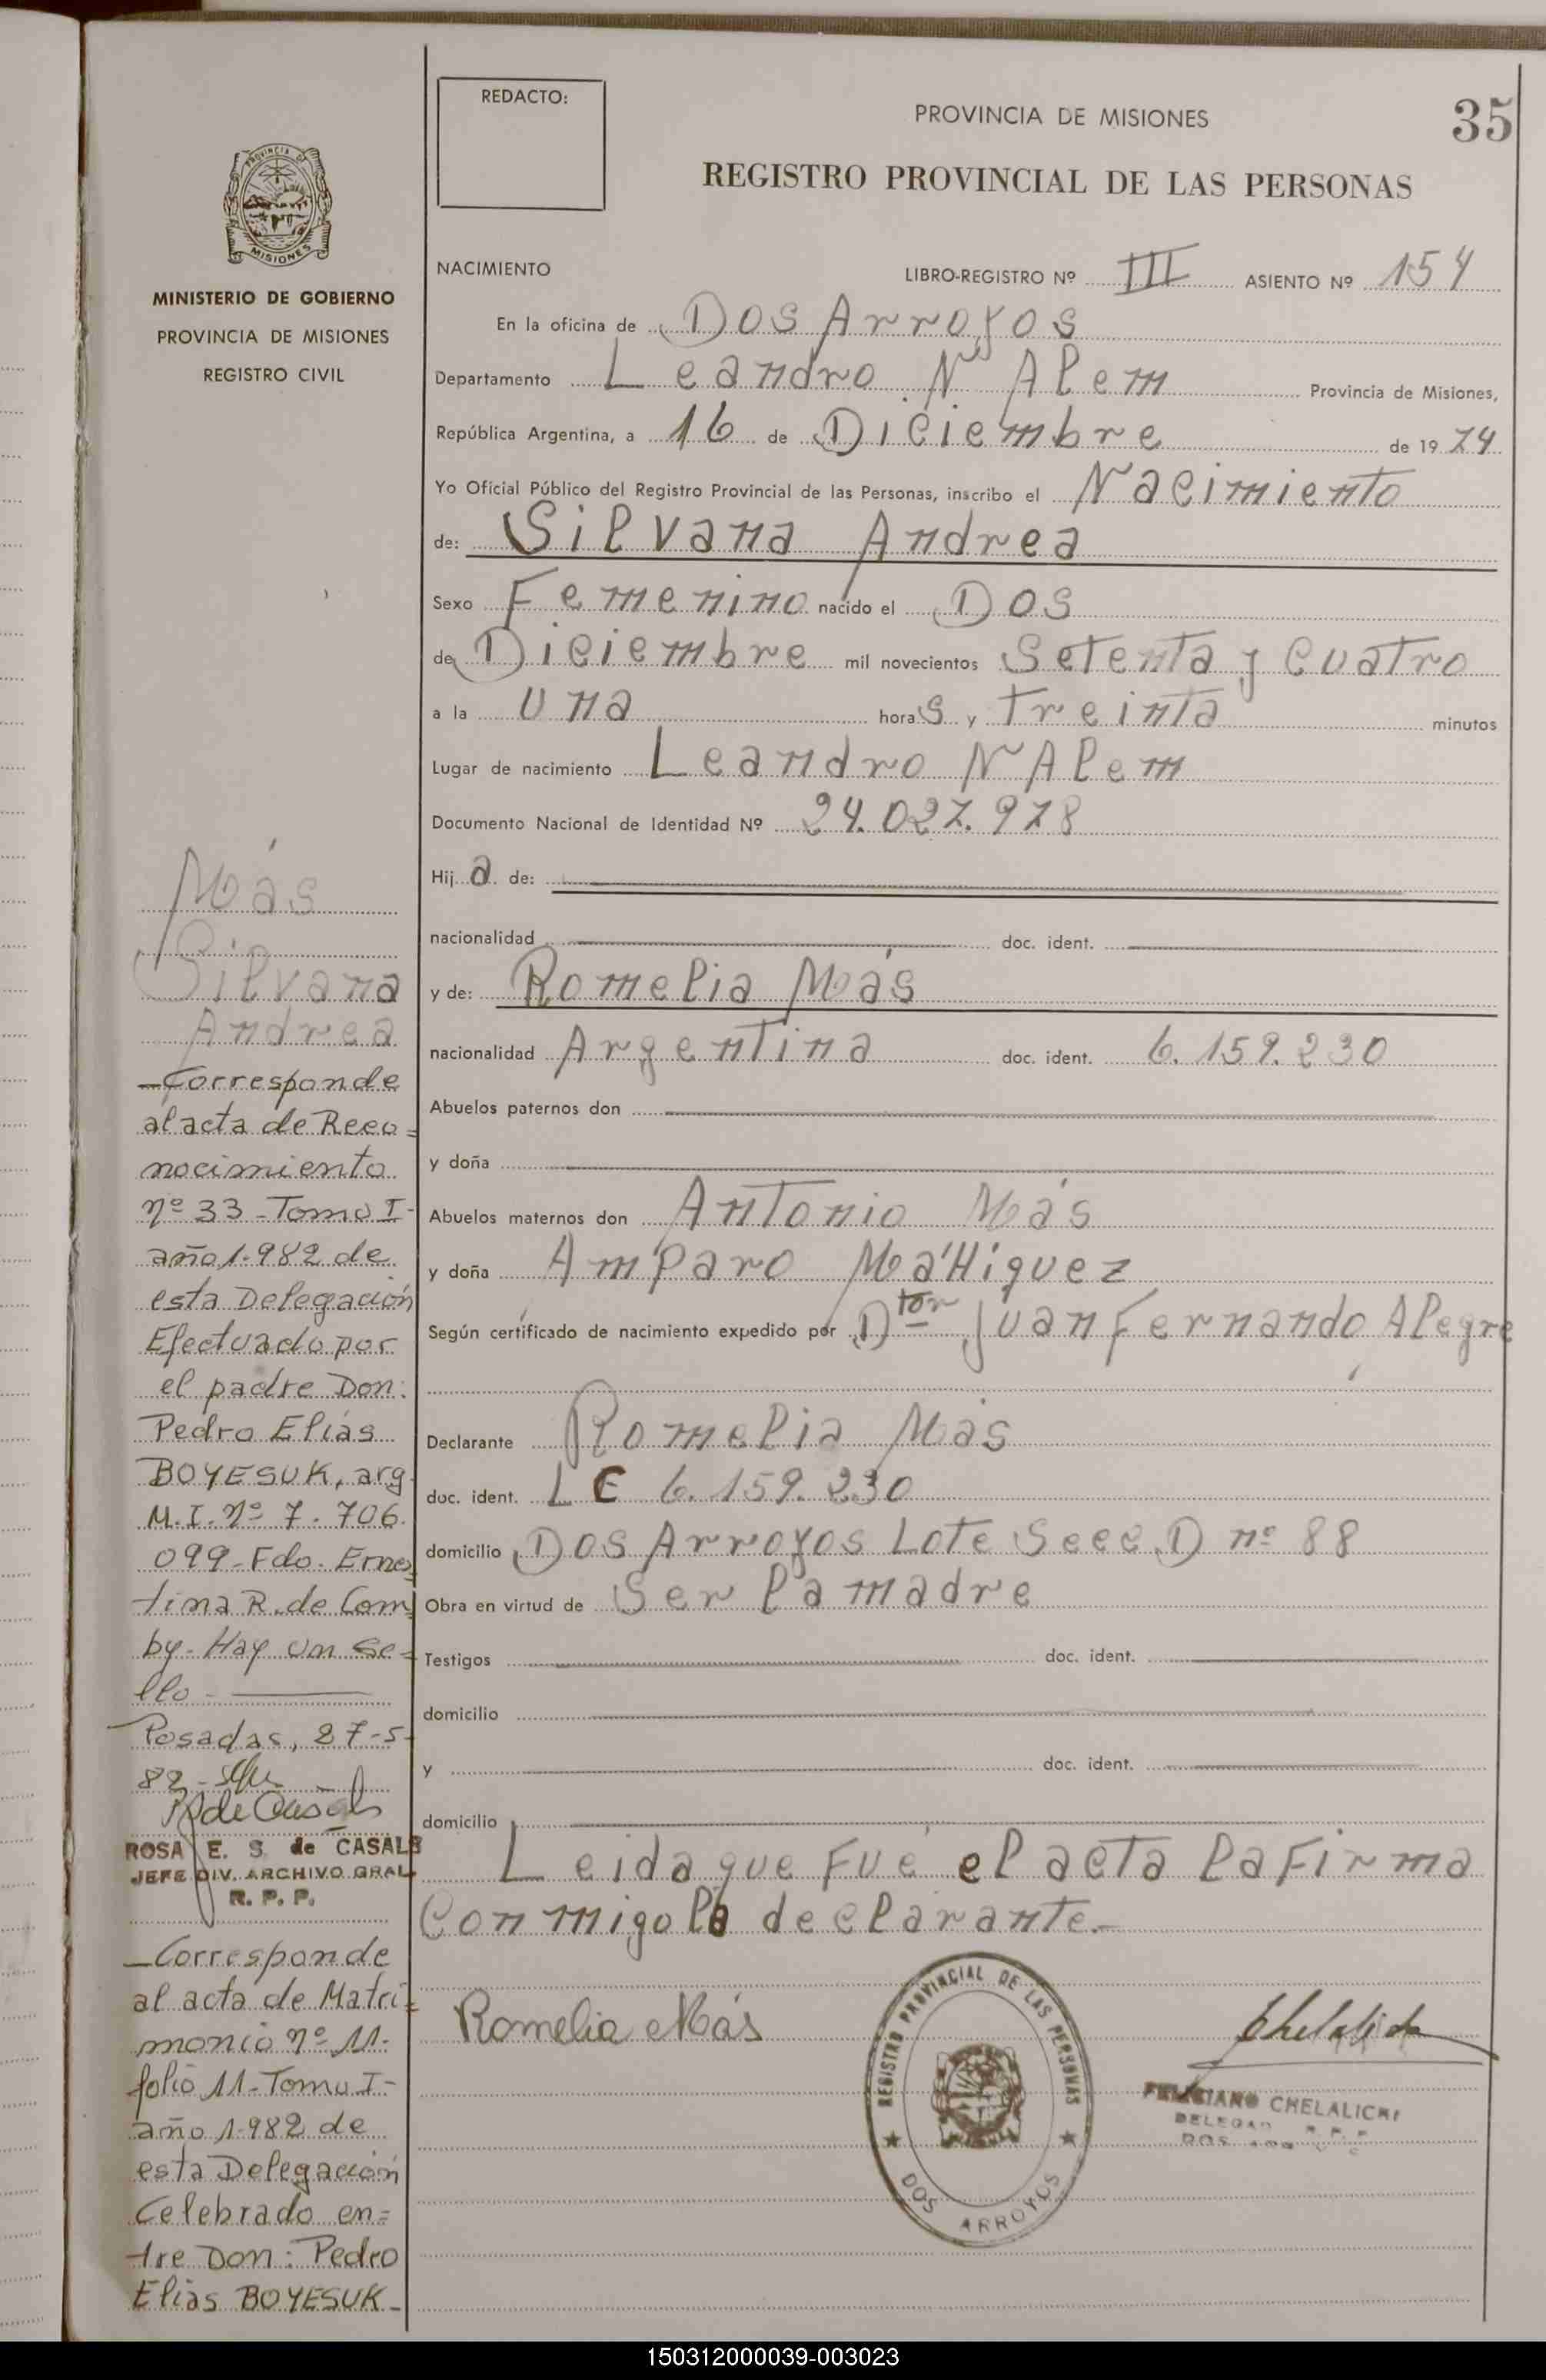 35
REDACTO:
PROVINCIA DE MISIONES
REGISTRO PROVINCIAL DE LAS PERSONAS
PROVINCIA DE
MISIONES
MINISTERIO DE GOBIERNO
PROVINCIA DE MISIONES
REGISTRO CIVIL
NACIMIENTO LIBRO-REGISTRO Nº III ASIENTO Nº 154
En la oficina de Dos Arroyos
Departamento Leandro N Alem Provincia de Misiones,
República Argentina, a 16 de Diciembre de 1974
Yo Oficial Público del Registro Provincial de las Personas, inscribo el Nacimiento
de: Silvana Andrea
Sexo Femenino nacido el Dos
de Diciembre mil novecientos Setenta y Cuatro
a la Una horas y Treinta minutos
Lugar de nacimiento Leandro N Alem
Documento Nacional de Identidad Nº 24.027.978
Hija de:
nacionalidad doc. ident.
y de: Romelia Más
nacionalidad Argentina doc. ident. 6.159.230
Abuelos paternos don
y doña
Abuelos maternos don Antonio Más
y doña Amparo
Según certificado de nacimiento expedido por Dtor Juan Fernando Alegre
Declarante Romelia Más
doc. ident. LC 6.159.230
domicilio Dos Arroyos Lote Secc D nº 88
Obra en virtud de Ser la madre
Testigos doc. ident.
domicilio
y doc. ident.
domicilio
Leida que Fué el acta la Firma
Conmigo la declarante.-
Romelia Más
REGISTRO PROVINCIAL DE LAS PERSONAS
DOS ARROYOS
FELICIANO CHELALICHI
DELEGADO R. P. P.
DOS ARROYOS
Más
Silvana
Andrea
-Corresponde
al acta de Reco=
nocimiento
nº 33-Tomo I-
año 1.982 de
esta Delegación
Efectuado por
el padre Don:
Pedro Elías
BOYESUK, arg.
M.I. Nº 7.706.
099-Fdo. Ernes
tina R. de Com
by- Hay un se=
llo-
Posadas, 27-5-
82-
ROSA E. S. de CASALS
JEFE DIV. ARCHIVO GRAL
R. P. P.
-Corresponde
al acta de Matri=
monio nº 11-
folio 11-Tomo I-
año 1.982 de
esta Delegación
Celebrado en=
tre Don: Pedro
Elías BOYESUK-
150312000039-003023